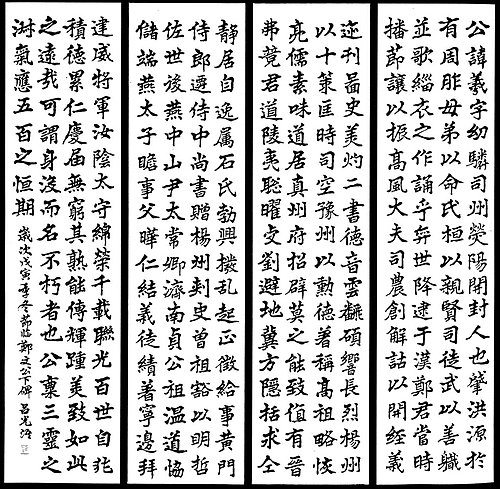 公諱羲字幼驎司州滎陽開封人也肇洪源於
有周胙母弟以命氏桓以親賢司徒武以善職
並歌緇衣之作誦乎奕世降逮于漢鄭君當時
播節讓以振高風大夫司農創解詁以開經義
迹刊圖史美灼二書德音雲翻碩響長烈楊州
以十策匡時司空豫州以勳德著稱高祖略恢
亮儒素味道居真州府招辟莫之能致值有晉
弗競君道陵夷聡曜虔劉避地冀方隱括求全
静居自逸属石氏勃興撥乱起正徵給事黄門
侍郎遷侍中尚書贈楊州刺史曾祖豁以明哲
佐世後燕中山尹太常卿濟南貞公祖温道協
儲端燕太子瞻事父曄仁結義徒績著寧邊拜
建威將軍汝陰太守綿榮千載聯光百世自非
積德累仁慶届無窮其熟能傳輝踵美致如此
之遠哉可謂身没而名不朽者也公稟三靈之
淑氣應五百之恒期
歲次戊寅季冬節臨鄭文公下碑 呂光